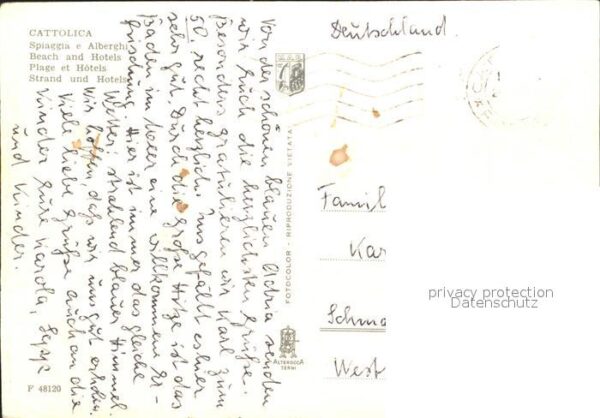 CATTOLICA
Spiaggia e Alberghi
Beach and Hotels
Plage et Hôtels
Strand und Hotels
Von der schönen blauen Adria senden
wir Euch die herzlichsten Grüße.
Besonders gratulieren wir Karl zum
50. recht herzlich. Uns gefällt es hier
sehr gut. Durch die große Hitze ist das
Baden im Meer eine willkommene Er-
frischung. Hier ist immer das gleiche
Wetter, strahlend blauer Himmel.
Wir hoffen, daß wir uns gut erholen.
Viele liebe Grüße auch an die
Kinder Eure Karola, Sepp
und Kinder.
F 48120
FOTOCOLOR - RIPRODUZIONE VIETATA
ALTEROCCA
TERNI
Deutschland.
Famil
Kar
Schma
West
privacy protection
Datenschutz